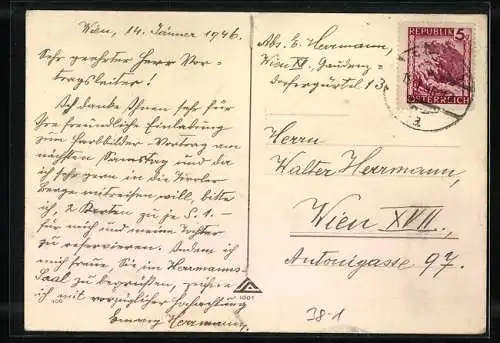 Wien, 14. Jänner 1946.
Sehr geehrter Herr Vor-
tragsleiter!
Ich danke Ihnen sehr für
Ihre freundliche Einladung
zum Farbbilder-Vortrag am
nächsten Samstag und da
ich sehr gern in die Tiroler
Berge mitreisen will, bitte
ich, 2 Karten zu je S. 1.–
für mich und meine Tochter
zu reservieren. Indem ich
mich freue, Sie im Herrmanns-
Saal zu begrüßen, zeichne
ich mit vorzüglicher Hochachtung
Herrmann.
Abs. E. Herrmann,
Wien XII, Gaudenz-
dorfergürtel 13
REPUBLIK 5
ÖSTERREICH
Herrn
Walter Herrmann,
Wien XVII.,
Antonigasse 97.
1001
38-1